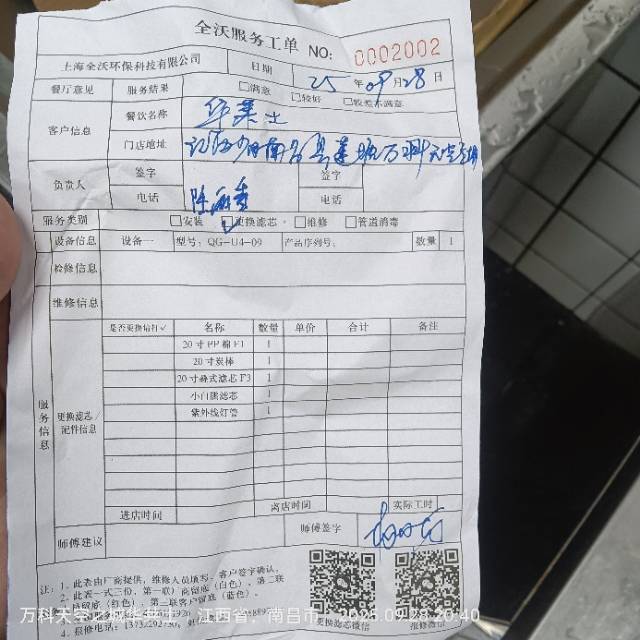 全沃服务工单 NO: 0002002
上海全沃环保科技有限公司 日期 25年09月28日
餐厅意见 服务结果 □满意 □较好 □较差不满意
客户信息 餐饮名称 华莱士
门店地址 江西省南昌县莲塘万科天空之城
负责人 签字 签字
电话 电话
服务类别 □安装 □更换滤芯 □维修 □管道消毒
设备信息 设备一 型号: QG-U4-09 产品序列号: 数量 1
检修信息
维修信息
服务信息 更换滤芯/配件信息
是否更换请打✓ 名称 数量 单价 合计 备注
20寸PP棉F1 1
20寸炭棒 1
20寸叠式滤芯F3 1
小白鹅滤芯 1
紫外线灯管 1
进店时间 离店时间 实际工时
师傅建议 师傅签字
注: 1、此表由厂商提供, 维修人员填写, 客户签字确认。
2、此表一式三份, 第一联厂商留底 (白色)、第二联
留底 (红色)、第三联客户留底 (蓝色)。
4、报修电话:
更换滤芯微信 报修微信
万科天空之城华莱士 江西省 南昌市 2025.09.28 20:40